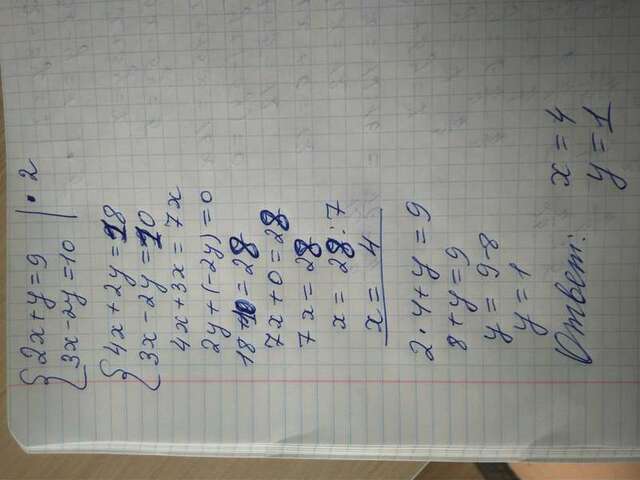 2x+y=9 | • 2
3x-2y=10
4x+2y=18
3x-2y=10
4x+3x=7x
2y+(-2y)=0
18+10=28
7x+0=28
7x=28
x=28:7
x=4
2•4+y=9
8+y=9
y=9-8
y=1
Ответ: x=4
y=1